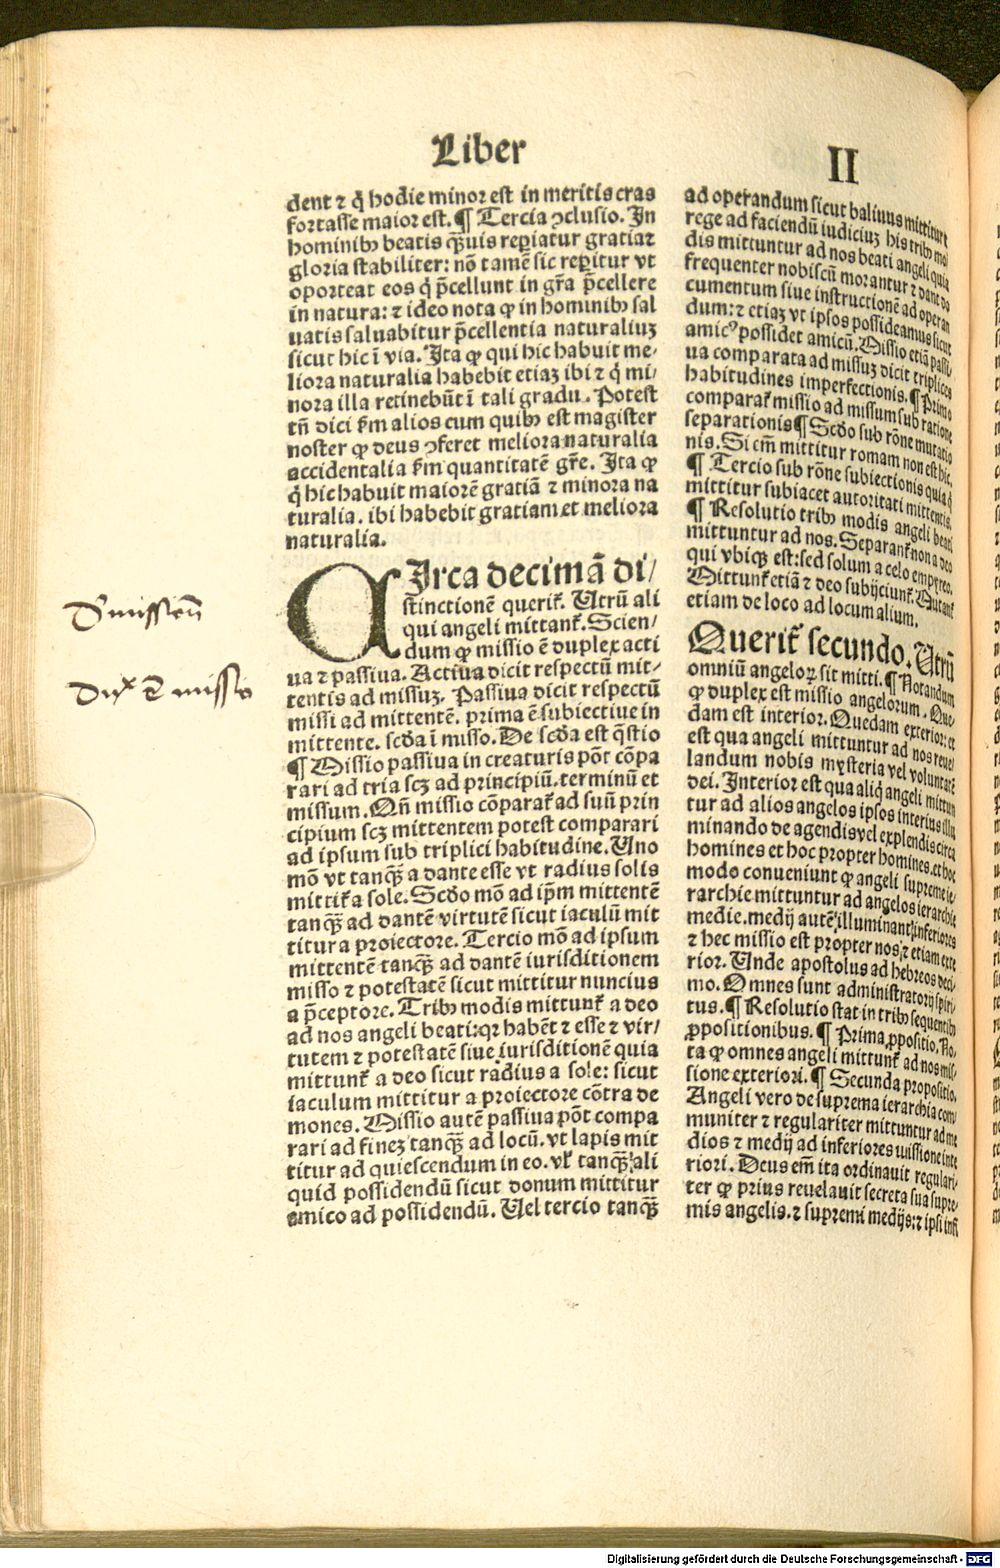 Liber
II
dent ⁊ q̄ hodie minor est in meritis cras
fortasse maior est. ¶ Tercia ꝯclusio. In
hominibꝰ beatis qᷓuis reꝑiatur gratiaꝫ
gloria stabiliter: nō tamē sic reꝑitur vt
oporteat eos q̄ p̄cellunt in gr̄a p̄cellere
in natura: ⁊ ideo nota ꝙ in hominibꝰ sal
uatis saluabitur p̄cellentia naturaliuꝫ
sicut hic ī via. Ita ꝙ qui hic habuit me⸗
liora naturalia habebit etiaꝫ ibi ⁊ q̄ mi⸗
nora illa retinebūt ī tali gradu. Potest
tn̄ dici ẜm alios cum quibꝰ est magister
noster ꝙ deus ꝯferet meliora naturalia
accidentalia ẜm quantitatē gr̄e. Ita ꝙ
q̄ hic habuit maiorē gratiā ⁊ minora na
turalia. ibi habebit gratiam et meliora
naturalia.
CIrca decimā di/
stinctionē queriť. Utrū ali
qui angeli mittanť. Scien⸗
dum ꝙ missio ē duplex acti
ua ⁊ passiua. Actiua dicit respectū mit⸗
tentis ad missuꝫ. Passiua dicit respectū
missi ad mittentē. prima ē subiectiue in
mittente. scďa ī misso. De scďa est q̄stio
¶ Missio passiua in creaturis pōt cōpa
rari ad tria scꝫ ad principiū. terminū et
missum. Qn̄ missio cōparať ad suū prin
cipium scꝫ mittentem potest comparari
ad ipsum sub triplici habitudine. Uno
mō vt tanqᷓꝫ a dante esse vt radius solis
mittiť a sole. Scďo mō ad ip̄m mittentē
tanqᷓꝫ ad dantē virtutē sicut iaculū mit
titur a proiectore. Tercio mō ad ipsum
mittentē tancqᷓꝫ ad dantē iurisditionem
misso ⁊ potestatē sicut mittitur nuncius
a p̄ceptore. Tribꝰ modis mittunť a deo
ad nos angeli beati: qꝛ habēt ⁊ esse ⁊ vir/
tutem ⁊ potestatē siue iurisditionē quia
mittunť a deo sicut radius a sole: sicut
iaculum mittitur a proiectore cōtra de
mones. Missio autē passiua pōt compa
rari ad fineꝫ tanqᷓꝫ ad locū. vt lapis mit
titur ad quiescendum in eo. vľ tanqᷓꝫ ali
quid possidendū sicut donum mittitur
amico ad possidendū. Uel tercio tanqᷓꝫ
ad operandum sicut baliuus mittitur a
rege ad faciendū iudiciuꝫ his tribꝰ mo
dis mittuntur ad nos beati angeli quia
frequenter nobiscū morantur ⁊ dant do
cumentum siue instructionē ad operan
dum: ⁊ etiaꝫ vt ipsos possideamus sicut
amicꝰ possidet amicū. Missio etiā passi⸗
ua comparata ad missuꝫ dicit triplices
habitudines imperfectionis. ¶ Primo
comparať missio ad missum sub ratione
separationis ¶ Scďo sub rōne mutatio
nis. Si em̄ mittitur romam non est hic.
¶ Tercio sub rōne subiectionis quia q̄
mittitur subiacet autoritati mittentis.
¶ Resolutio tribꝰ modis angeli beati
mittuntur ad nos. Separanť non a deo
qui vbiqꝫ est: sed solum a celo empyreo.
Mittunť etiā ⁊ deo subijciunť. Mutanť
etiam de loco ad locum alium.
Queriť secundo. Utrū
omniū angeloꝝ sit mitti. ¶ Notandum
ꝙ duplex est missio angelorum. Que⸗
dam est interior. Quedam exterior: et
est qua angeli mittuntur ad nos reue⸗
landum nobis mysteria vel voluntatē
dei. Interior est qua aliq̄ angeli mittun
tur ad alios angelos ipsos interius illu
minando de agendis vel explendis circa
homines et hoc propter homines. et hoc
modo conueniunt ꝙ angeli supreme ie⸗
rarchie mittuntur ad angelos ierarchie
medie. medij autē illuminant inferiores
⁊ hec missio est propter nos, ⁊ etiam exte
rior. Unde apostolus ad hebreos deci⸗
mo. Omnes sunt administratorij spiri⸗
tus. ¶ Resolutio stat in tribꝰ sequentibꝰ
ꝓpositionibus. ¶ Prima ꝓpositio. No⸗
ta ꝙ omnes angeli mittunť ad nos mis⸗
sione exteriori. ¶ Secunda propositio.
Angeli vero de suprema ierarchia com⸗
muniter ⁊ regulariter mittuntur ad me
dios ⁊ medij ad inferiores missione inte
riori. Deus em̄ ita ordinauit regulari⸗
ter ꝙ prius reuelauit secreta sua supre⸗
mis angelis. ⁊ supremi medijs: ⁊ ipsi infi
Digitalisierung gefördert durch die Deutsche Forschungsgemeinschaft - DFG